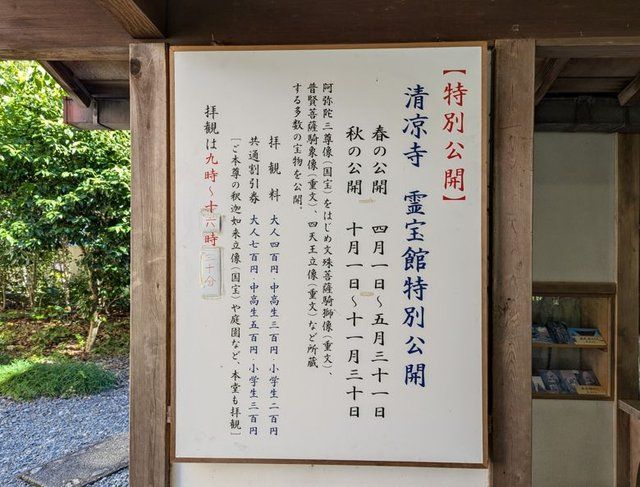 【特別公開】
清凉寺　霊宝館特別公開
春の公開　四月一日～五月三十一日
秋の公開　十月一日～十一月三十日
阿弥陀三尊像（国宝）をはじめ文殊菩薩騎獅像（重文）、
普賢菩薩騎象像（重文）、四天王立像（重文）など所蔵
する多数の宝物を公開。
拝観料　大人四百円　中高生三百円　小学生二百円
共通割引券　大人七百円　中高生五百円　小学生三百円
［ご本尊の釈迦如来立像（国宝）や庭園など、本堂も拝観］
拝観は九時～十六時三十分